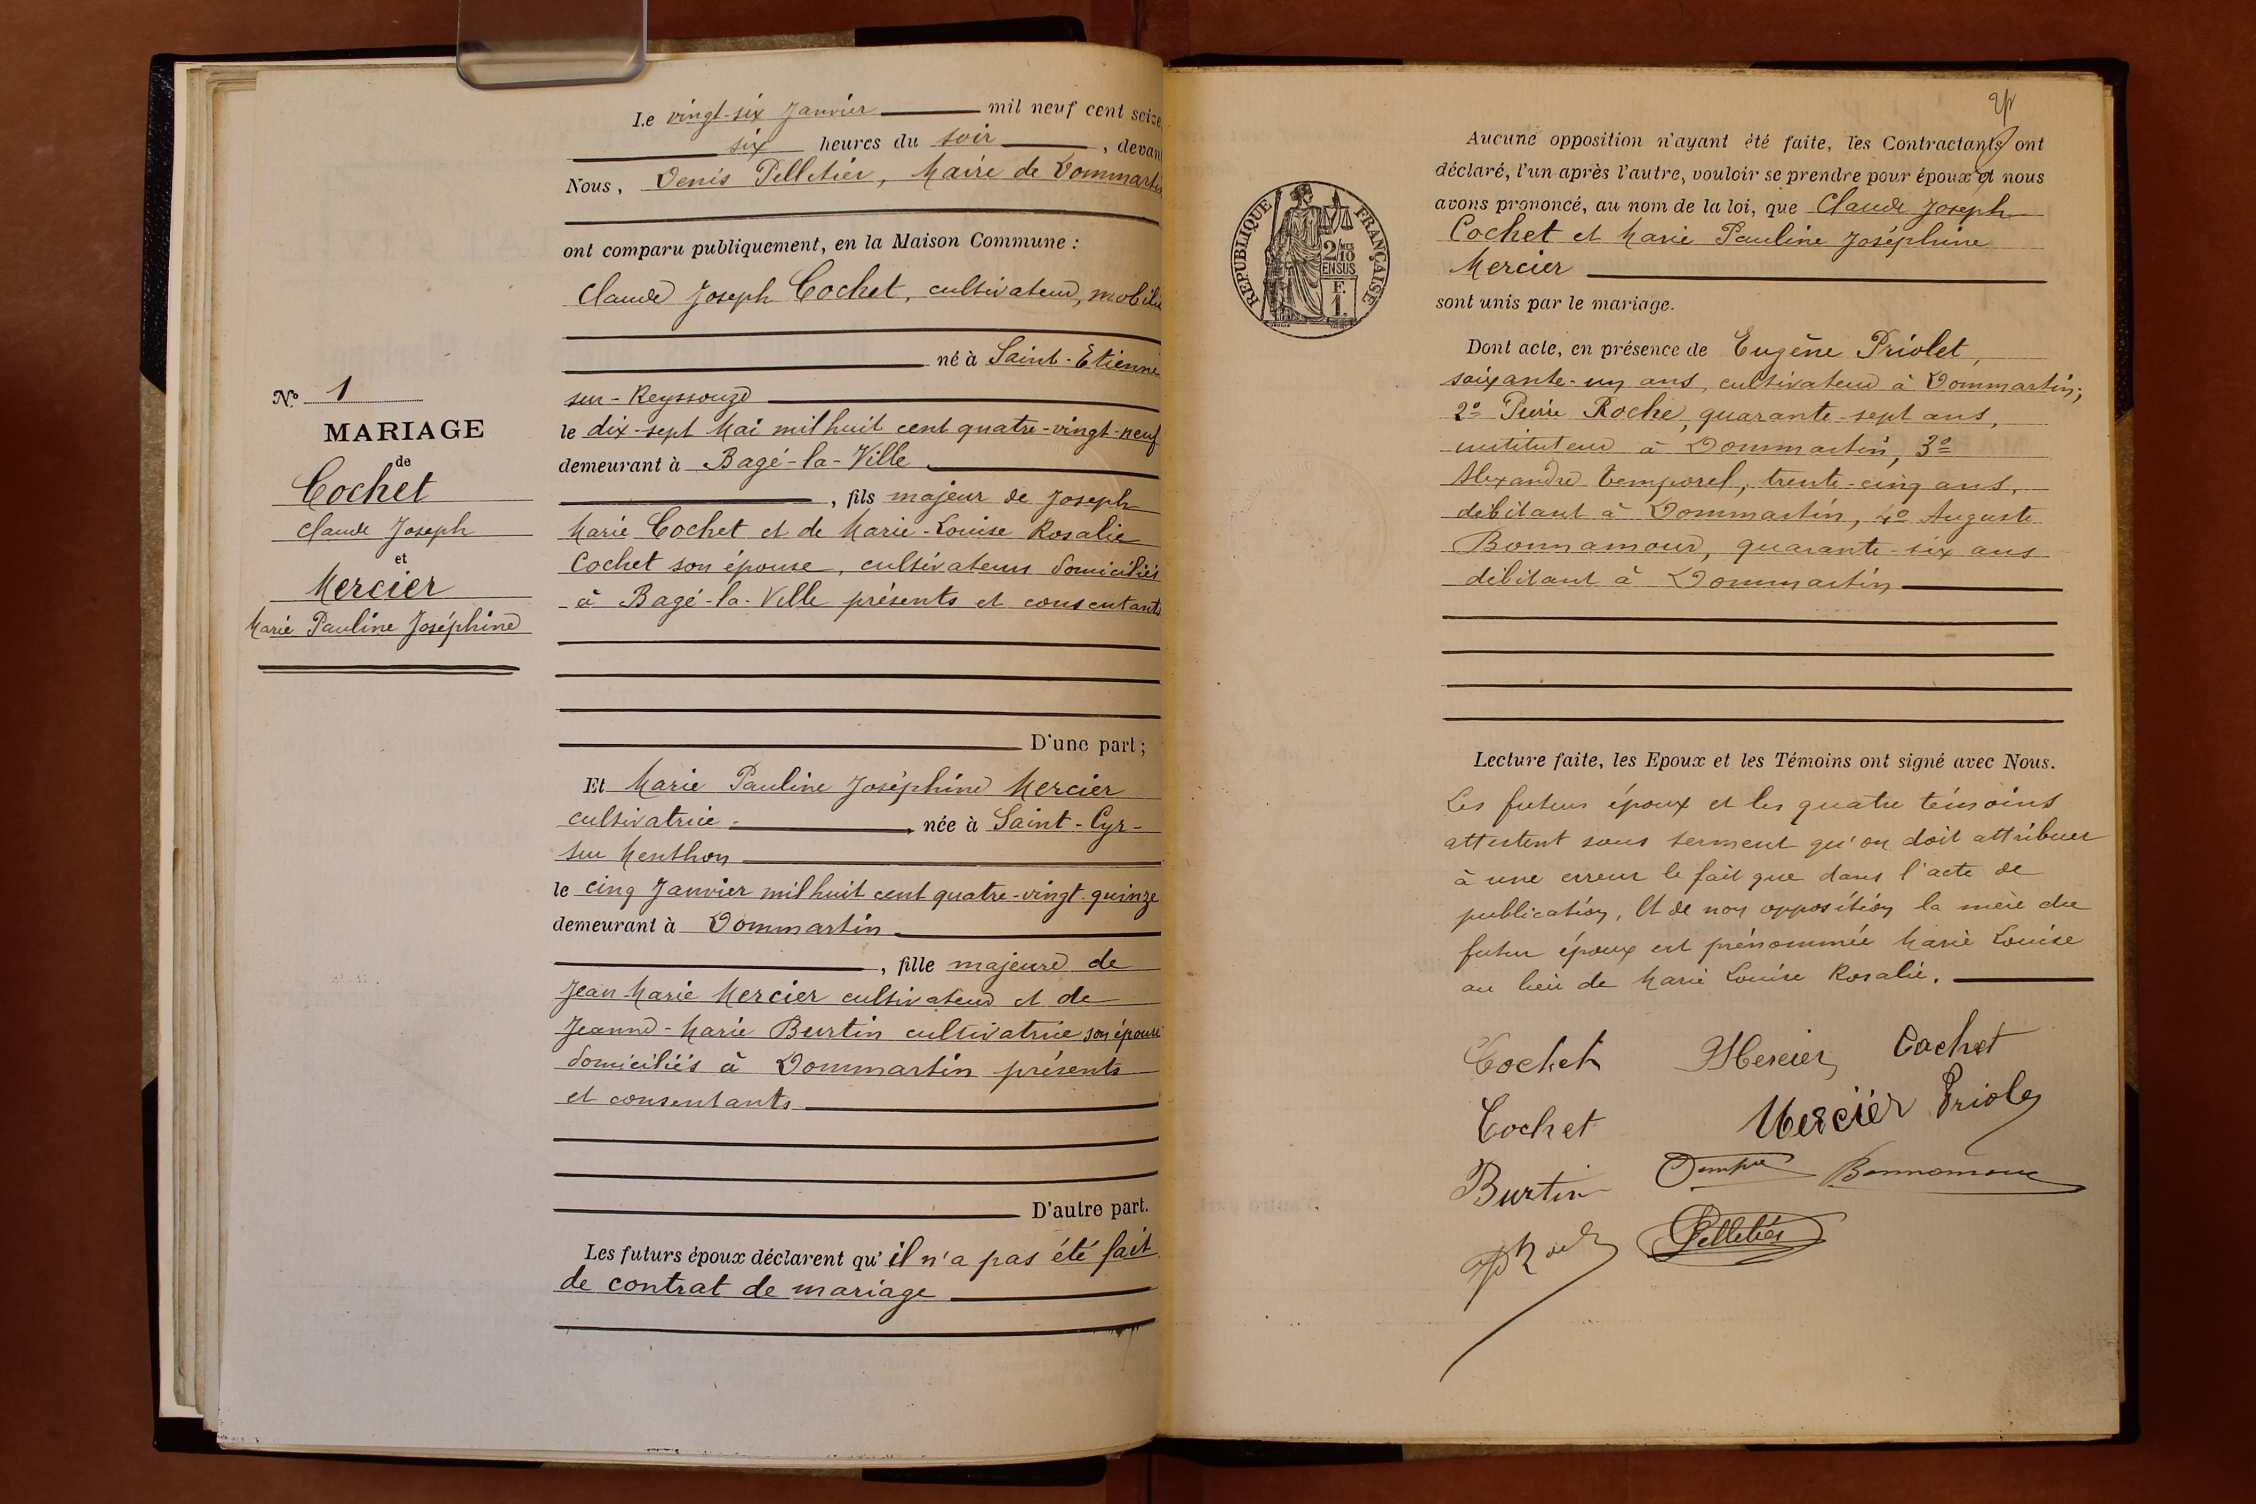 Nº 1
MARIAGE
de
Cochet
Claude Joseph
et
Mercier
Marie Pauline Joséphine
Le vingt-six Janvier mil neuf cent seize,
six heures du soir, devant
Nous, Denis Pelletier, Maire de Dommartin
ont comparu publiquement, en la Maison Commune :
Claude Joseph Cochet, cultivateur, mobilisé
né à Saint-Etienne
sur-Reyssouze
le dix-sept Mai mil huit cent quatre-vingt-neuf
demeurant à Bagé-la-Ville
, fils majeur de Joseph
Marie Cochet et de Marie-Louise Rosalie
Cochet son épouse, cultivateurs domiciliés
à Bagé-la-Ville présents et consentants
D'une part ;
Et Marie Pauline Joséphine Mercier
cultivatrice née à Saint-Cyr-
sur Menthon
le cinq Janvier mil huit cent quatre-vingt-quinze
demeurant à Dommartin
, fille majeure de
Jean-Marie Mercier cultivateur et de
Jeanne-Marie Burtin cultivatrice son épouse
domiciliés à Dommartin présents
et consentants
D'autre part.
Les futurs époux déclarent qu'il n'a pas été fait
de contrat de mariage
RÉPUBLIQUE FRANÇAISE
2/10
EN SUS
F.
1.
Aucune opposition n'ayant été faite, les Contractants ont
déclaré, l'un après l'autre, vouloir se prendre pour époux et nous
avons prononcé, au nom de la loi, que Claude Joseph
Cochet et Marie Pauline Joséphine
Mercier
sont unis par le mariage.
Dont acte, en présence de Eugène Priolet,
soixante-un ans, cultivateur à Dommartin;
2º Pierre Roche, quarante-sept ans,
instituteur à Dommartin, 3º
Alexandre Temporel, trente-cinq ans,
débitant à Dommartin, 4º Auguste
Bonnamour, quarante-six ans
débitant à Dommartin
Lecture faite, les Epoux et les Témoins ont signé avec Nous.
Les futurs époux et les quatre témoins
attestent sous serment qu'on doit attribuer
à une erreur le fait que dans l'acte de
publication, et de non opposition la mère du
futur époux est prénommée Marie Louise
au lieu de Marie Louise Rosalie.
Cochet Mercier Cochet
Cochet Mercier Priolet
Burtin Bonnamour
Pelletier